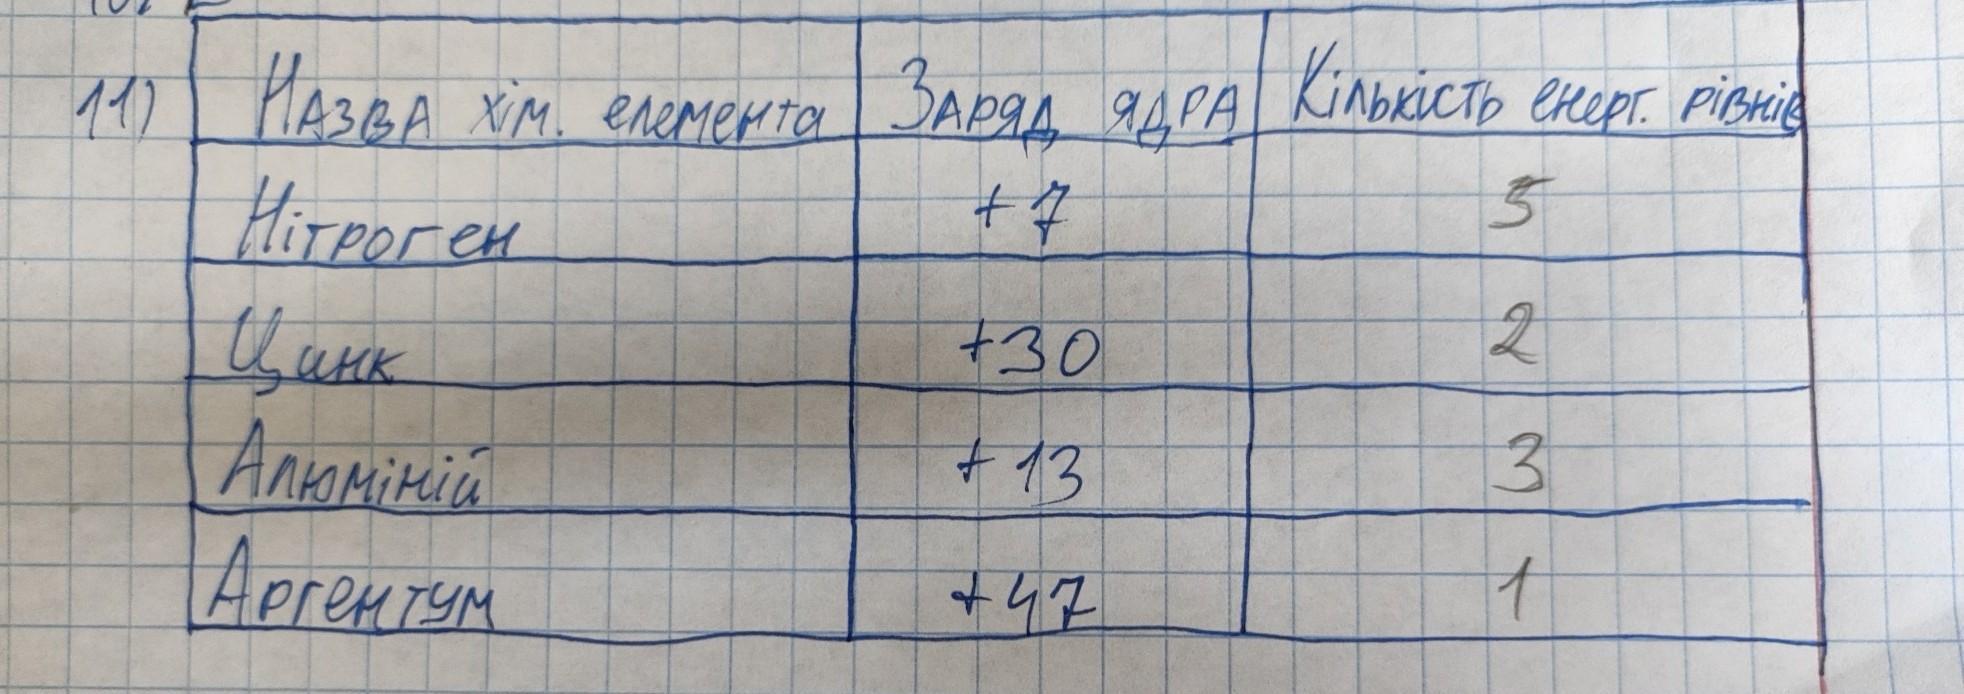 11) Назва хім. елемента Заряд ядра Кількість енерг. рівнів
Нітроген +7 5
Цинк +30 2
Алюміній +13 3
Аргентум +47 1